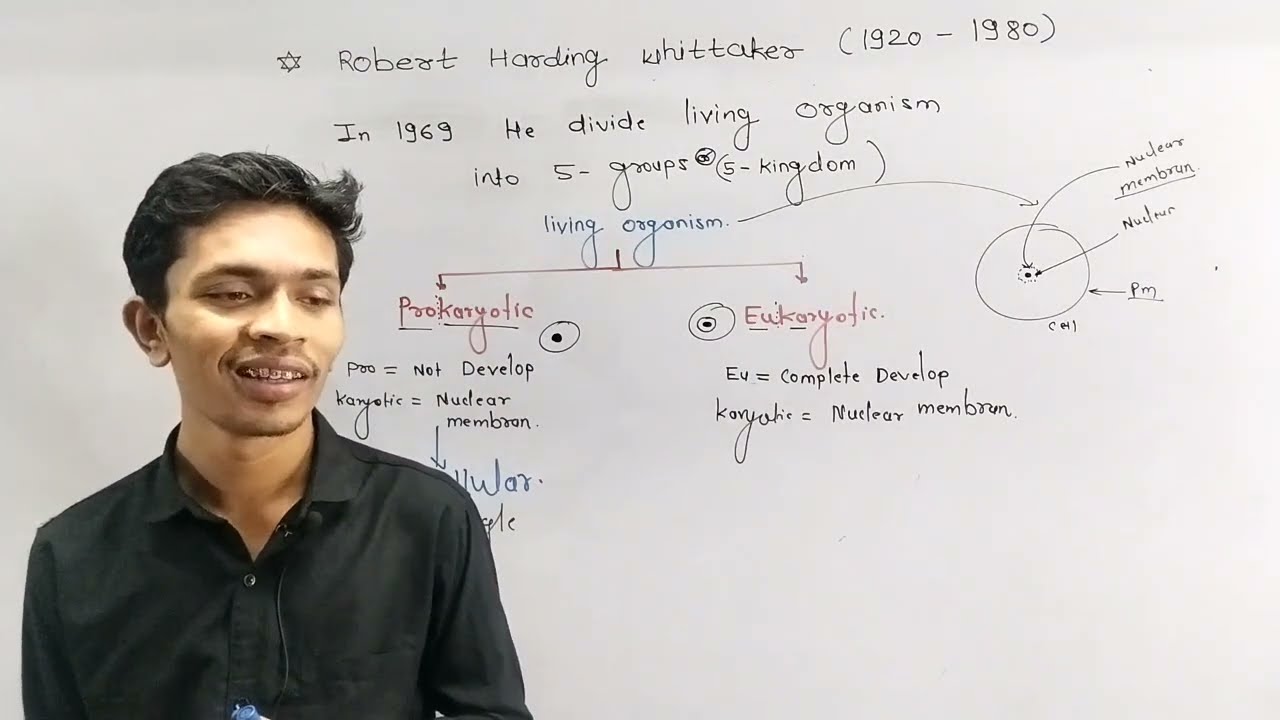 ☆ Robert Harding Whittaker (1920 - 1980)
In 1969 He divide living organism
into 5- groups or (5-kingdom)
living organism.
Nuclear
membran.
Nuclear
Pm
Cell
Prokaryotic
Eukaryotic.
Pro = Not Develop
Karyotic = Nuclear
membran.
Eu = Complete Develop
Karyotic = Nuclear membran.